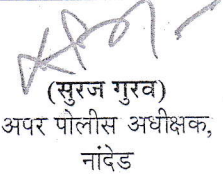 (सुरज गुरव)
अपर पोलीस अधीक्षक,
नांदेड